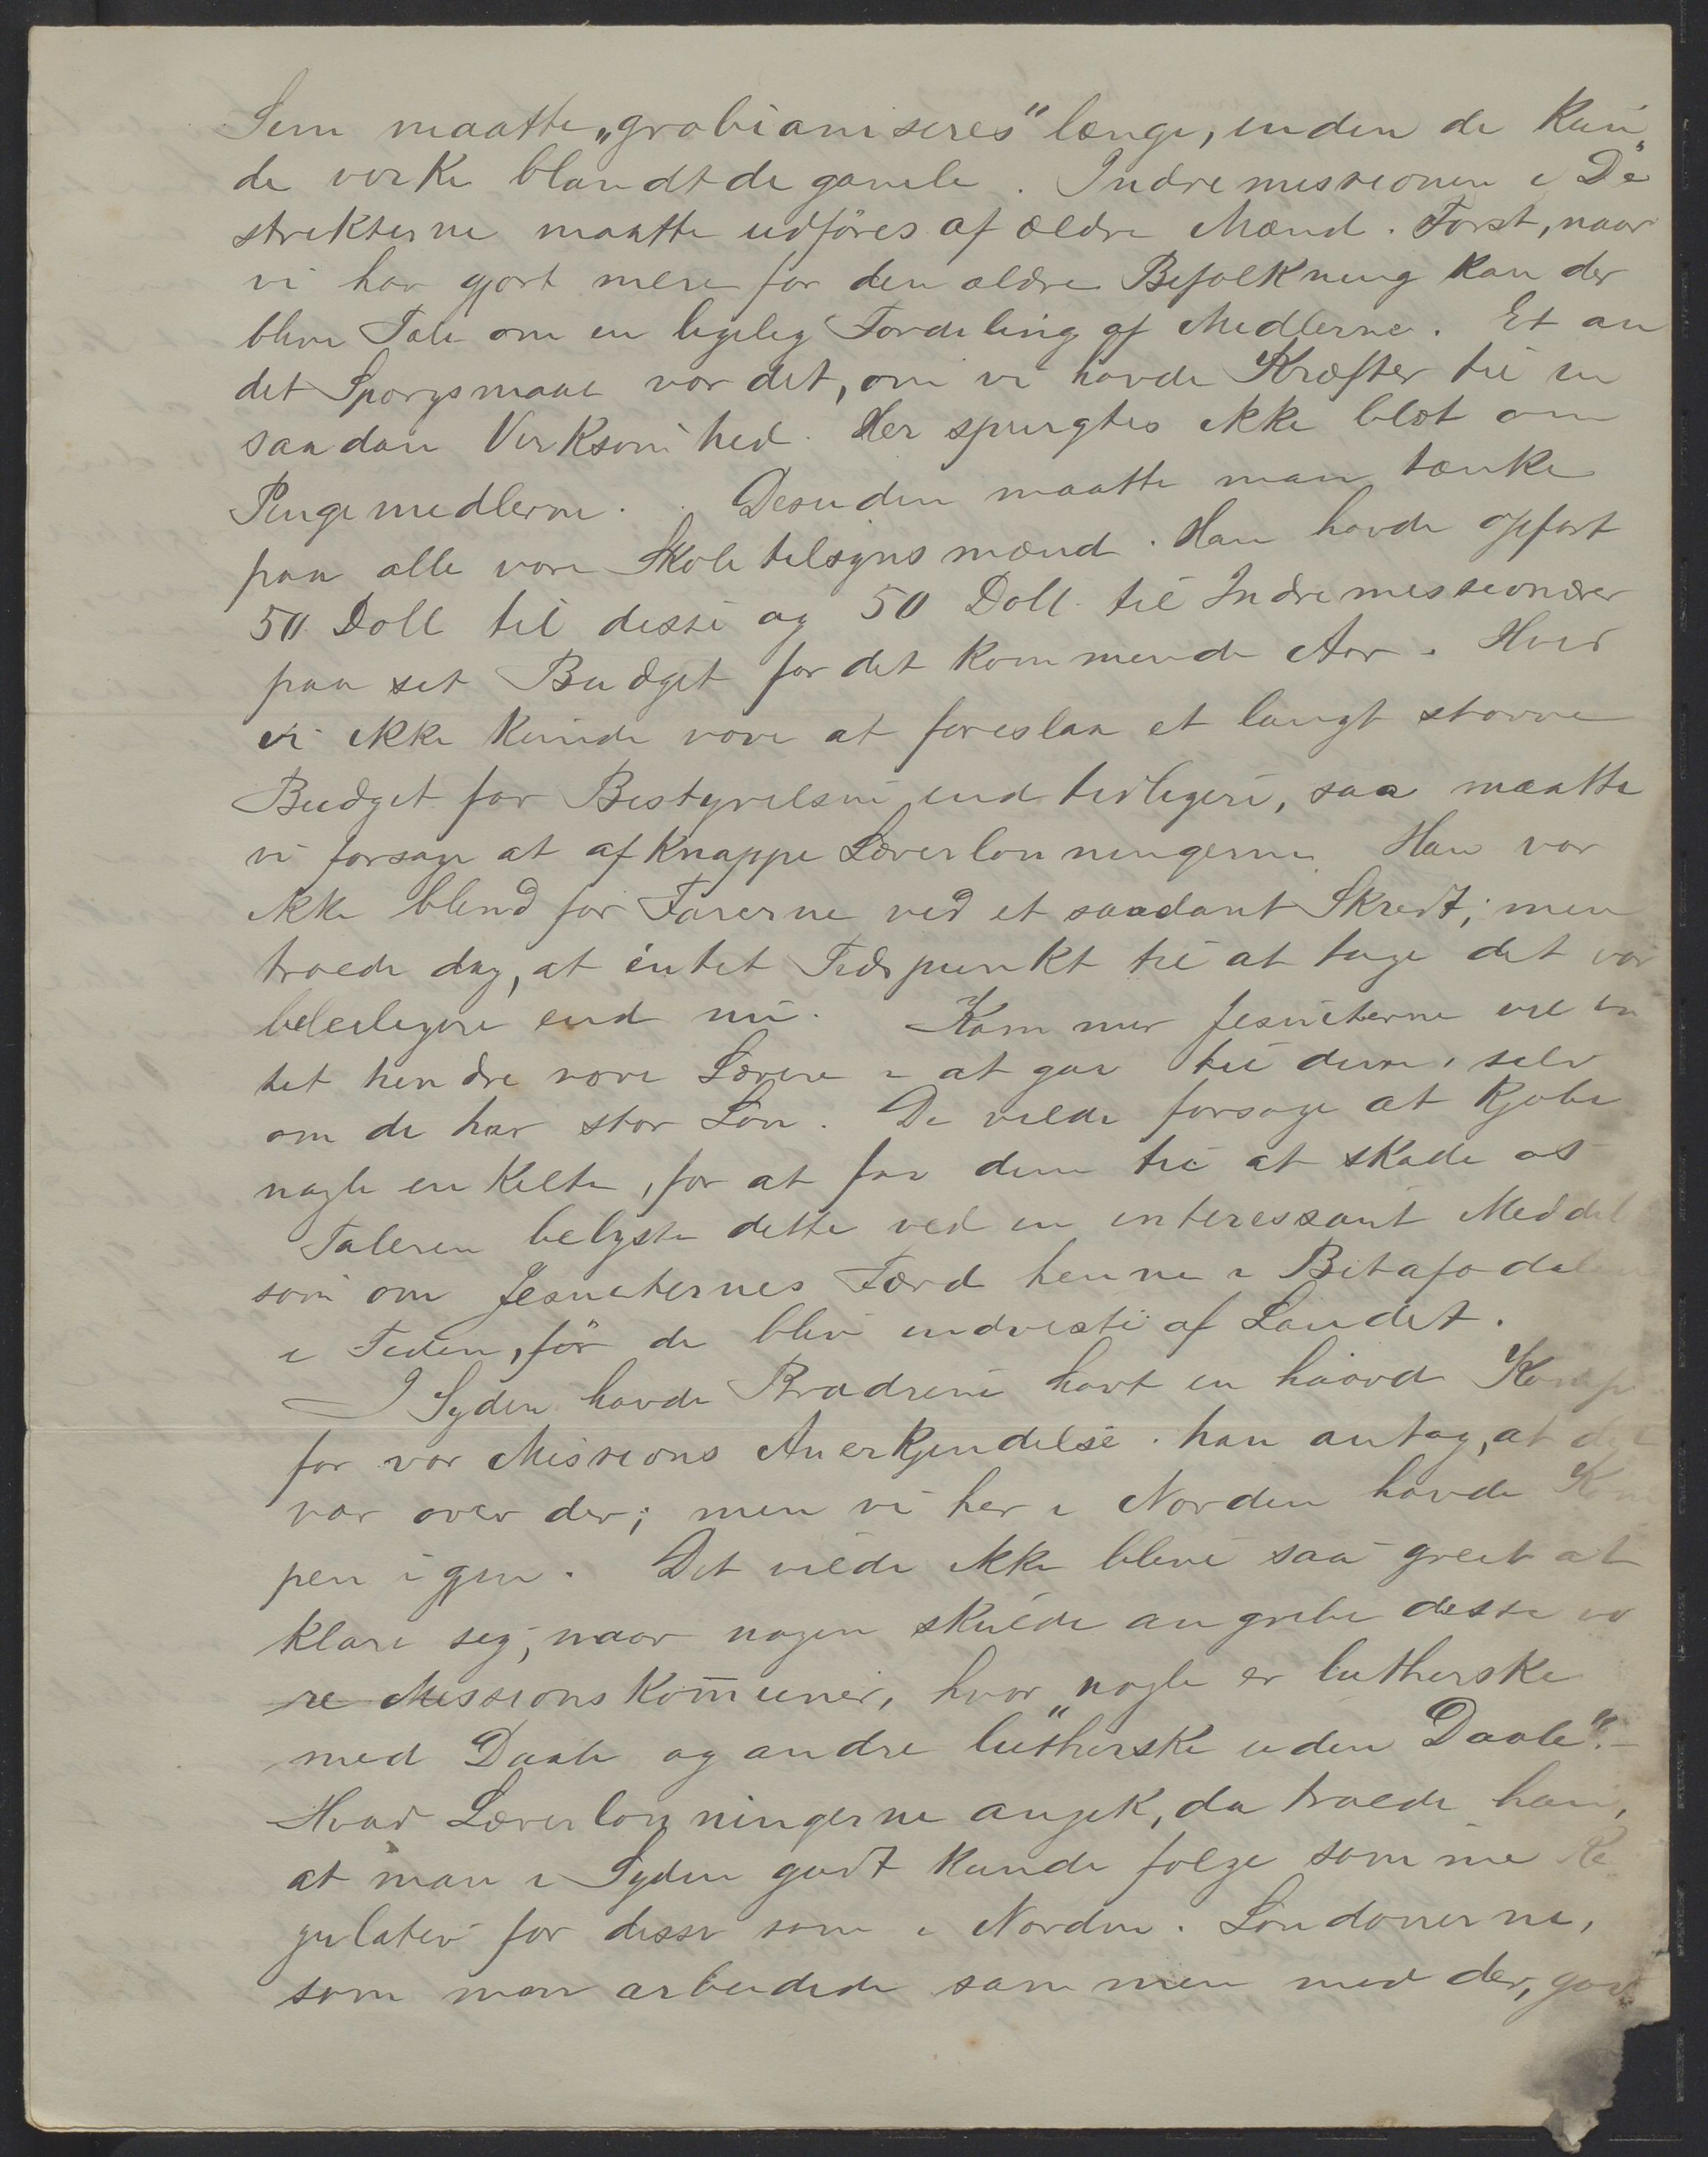 Sem maatte „grabianiseres" længe, inden de kun-
de virke blandt de gamle. Indremissionen i Di-
strikterne maatte udføres af ældre Mænd. Først, naar
vi har gjort mere for den ældre Befolkning kan der
blive Tale om en ligelig Fordeling af Midlerne. Et an
det Spørgsmaal var det, om vi havde Kræfter til en
saadan Virksomhed. Her spurgtes ikke blot om
Pengemidlerne. Desuden maatte man tænke
paa alle vore Skoletilsynsmænd. Han havde opført
50 Doll til disse og 50 Doll. til Indremissionærer
paa sit Budget for det kommende Aar. Hvis
vi ikke kunde vove at foreslaa et langt større
Budget for Bestyrelsen end tidligere, saa maatte
vi forsøge at afknappe Lærerlønningerne Han var
ikke blind for Farerne ved et saadant Skridt; men
troede dog, at intet Tidspunkt til at tage det var
beleiligere end nu. Kommer Jesuiterne vil in
tet hindre vore Lærere i at gaa til dem, selv
om de har stor Løn. De vilde forsøge at kjøbe
nogle enkelte, for at faa dem til at skade os
Taleren belyste dette ved en interessant Meddel
som om Jesuiternes Færd henne i Bitafodalen
i Tiden, før de blev udviste af Landet.
I Syden havde Brødrene havt en haard Kamp
for vor Missions Anerkjendelse. han antog, at det
var over der; men vi her i Norden havde Kam
pen igjen. Det vilde ikke blive saa greit at
klare sig, naar nogen skulde angribe disse vo
re Missionskom̄uner, hvor „nogle er lutherske
med Daab og andre lutherske uden Daab".–
Hvad Lærerlønningerne angik, da troede han,
at man i Syden godt kunde følge samme Re
gulativ for disse som i Norden. Londonerne,
som man arbeidede sammen med der, gav